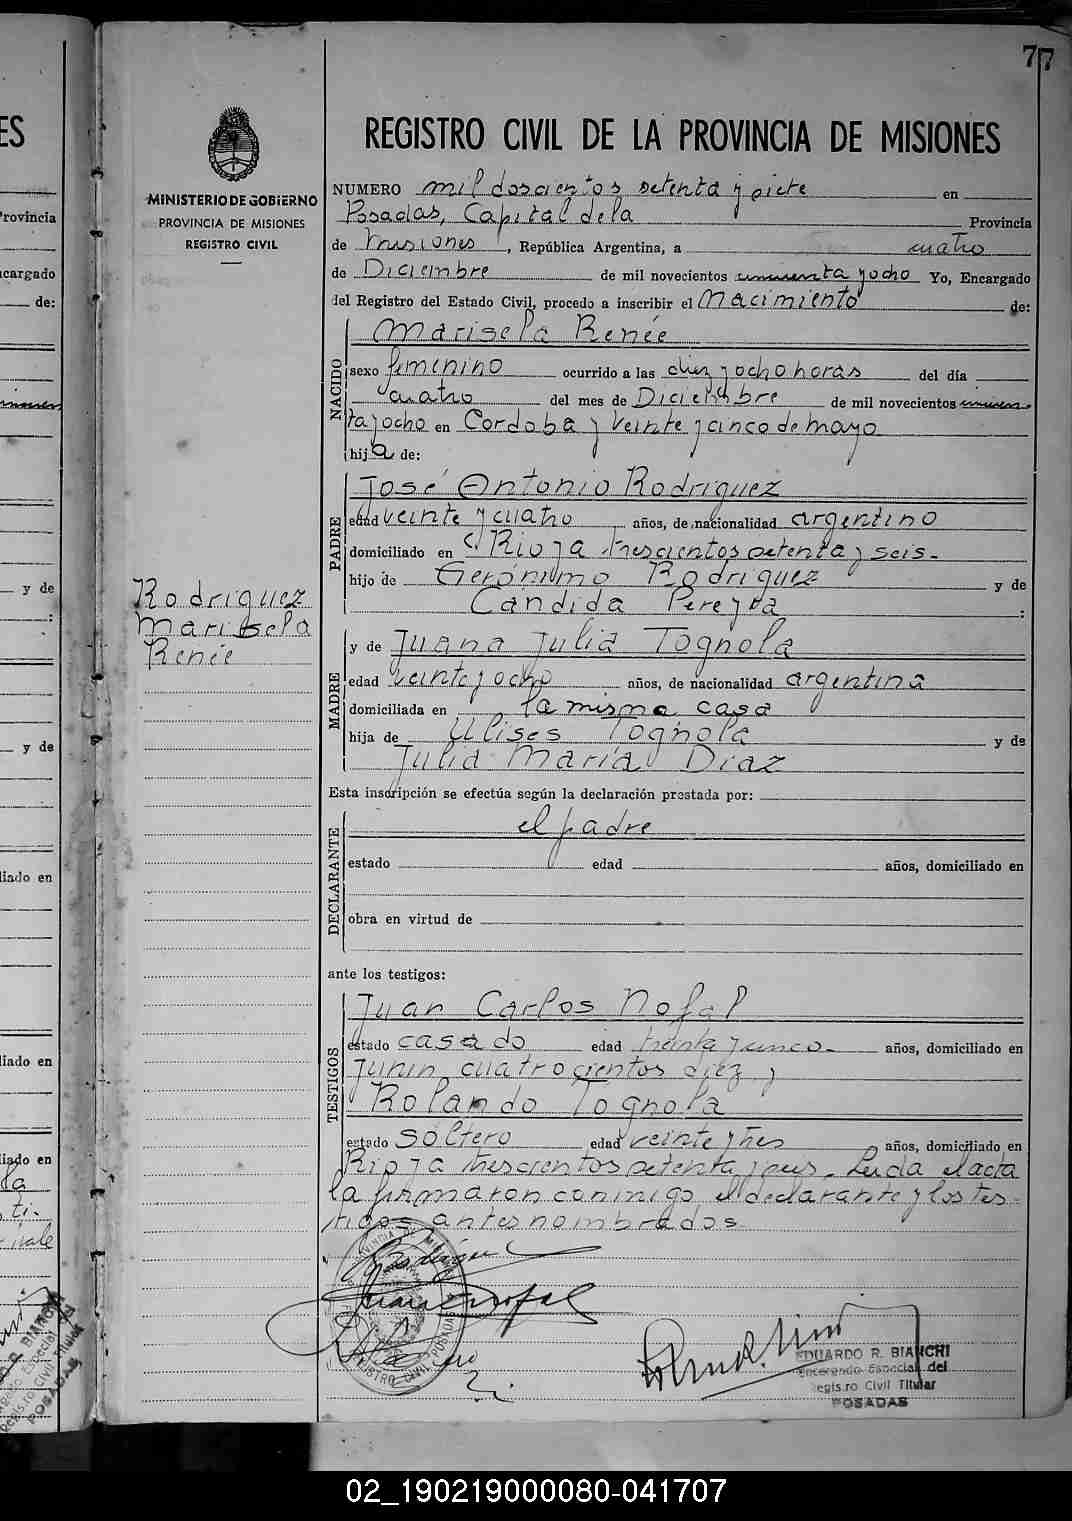 77
REGISTRO CIVIL DE LA PROVINCIA DE MISIONES
MINISTERIO DE GOBIERNO
PROVINCIA DE MISIONES
REGISTRO CIVIL
NUMERO mil doscientos setenta y siete en
Posadas, Capital de la Provincia
de Misiones, República Argentina, a cuatro
de Diciembre de mil novecientos cincuenta y ocho Yo, Encargado
del Registro del Estado Civil, procedo a inscribir el Nacimiento de:
NACIDO
Marisela Renée
sexo femenino ocurrido a las diez y ocho horas del día
cuatro del mes de Diciembre de mil novecientos cincuen-
ta y ocho en Cordoba y Veinte y cinco de mayo
hija de:
PADRE
José Antonio Rodriguez
edad veinte y cuatro años, de nacionalidad argentino
domiciliado en C. Rioja trescientos setenta y seis-
hijo de Gerónimo Rodriguez y de
Cándida Pereyra :
Rodriguez
Marisela
Renée
MADRE
y de Juana Julia Tognola
edad veinte y ocho años, de nacionalidad argentina
domiciliada en la misma casa
hija de Ulises Tognola y de
Julia María Diaz
Esta inscripción se efectúa según la declaración prestada por:
DECLARANTE
el padre
estado edad años, domiciliado en
obra en virtud de
ante los testigos:
TESTIGOS
Juan Carlos Nofal
estado casado edad treinta y cinco- años, domiciliado en
Junin cuatrocientos diez y
Rolando Tognola
estado soltero edad veinte y tres años, domiciliado en
Rioja trescientos setenta y seis- Leida el acta
la firmaron conmigo el declarante y los tes-
tigos antes nombrados
EDUARDO R. BIANCHI
Encargado Especial del
Regis.ro Civil Titular
POSADAS
02_190219000080-041707